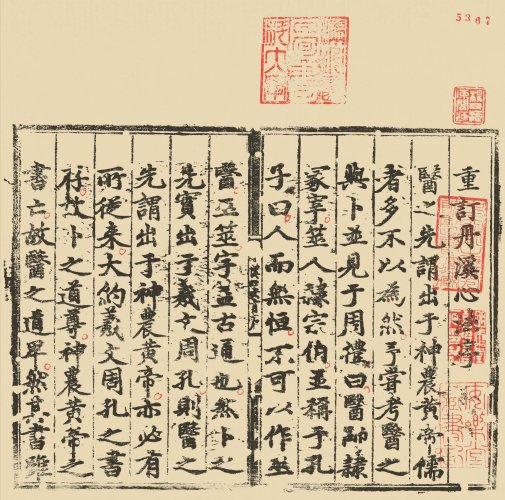 5367
重訂丹溪心法序
醫之先謂出于神農黃帝儒
者多不以為然予嘗考醫之
與卜並見于周禮曰醫師隸
冢宰筮人隸宗伯並稱于孔
子曰人而無恒不可以作巫
醫巫筮字蓋古通也然卜之
先實出于羲文周孔則醫之
先謂出于神農黃帝亦必有
所從来大約羲文周孔之書
存故卜之道尊神農黃帝之
書亡故醫之道卑然其書雖